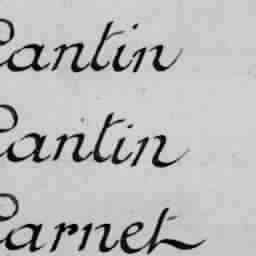 Cantin
Cantin
Carnet